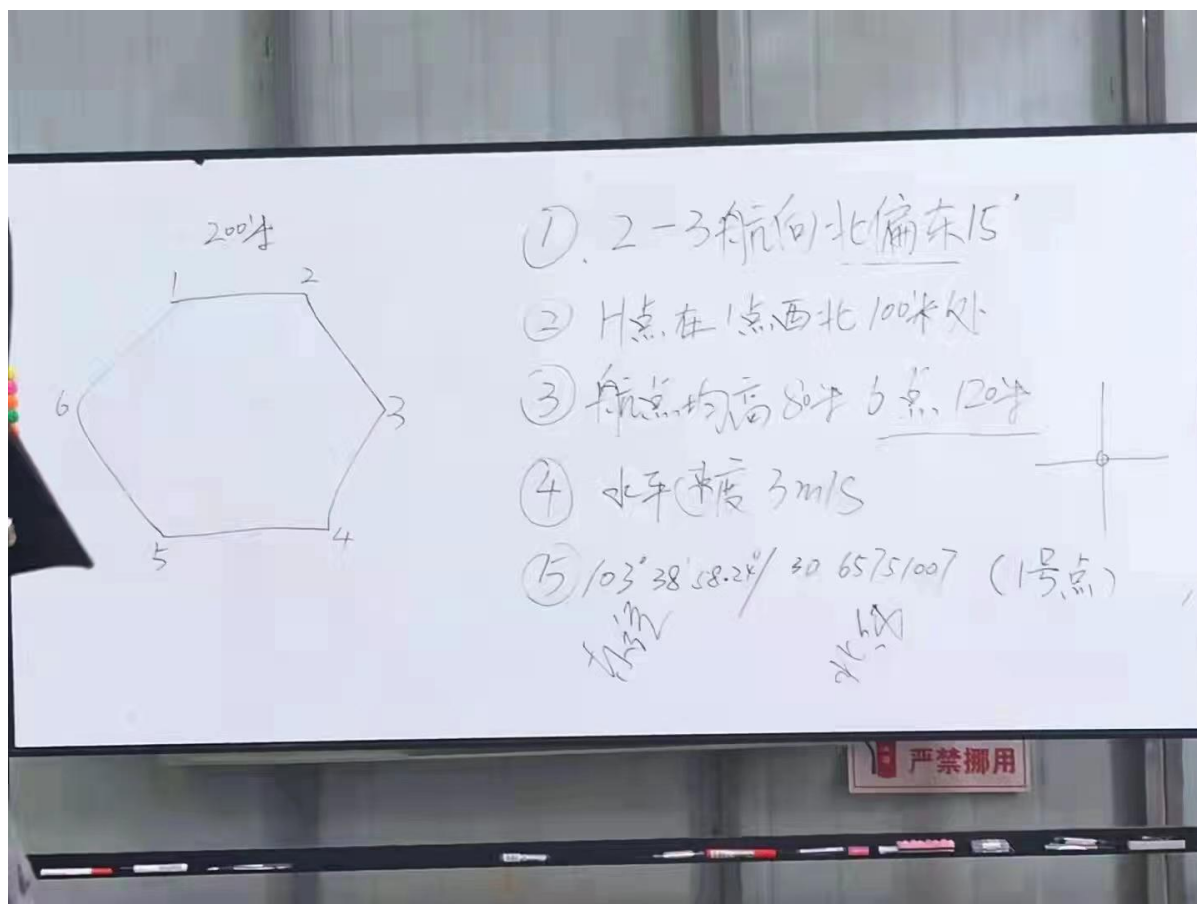 200米
1
2
3
4
5
6
① 2-3航向北偏东15°
② H点在1点西北100米处
③ 航点均高80米 6点120米
④ 水平速度3m/s
⑤ 103°38′58.24″/ 30.65751007 (1号点)
东经
北纬
严禁挪用